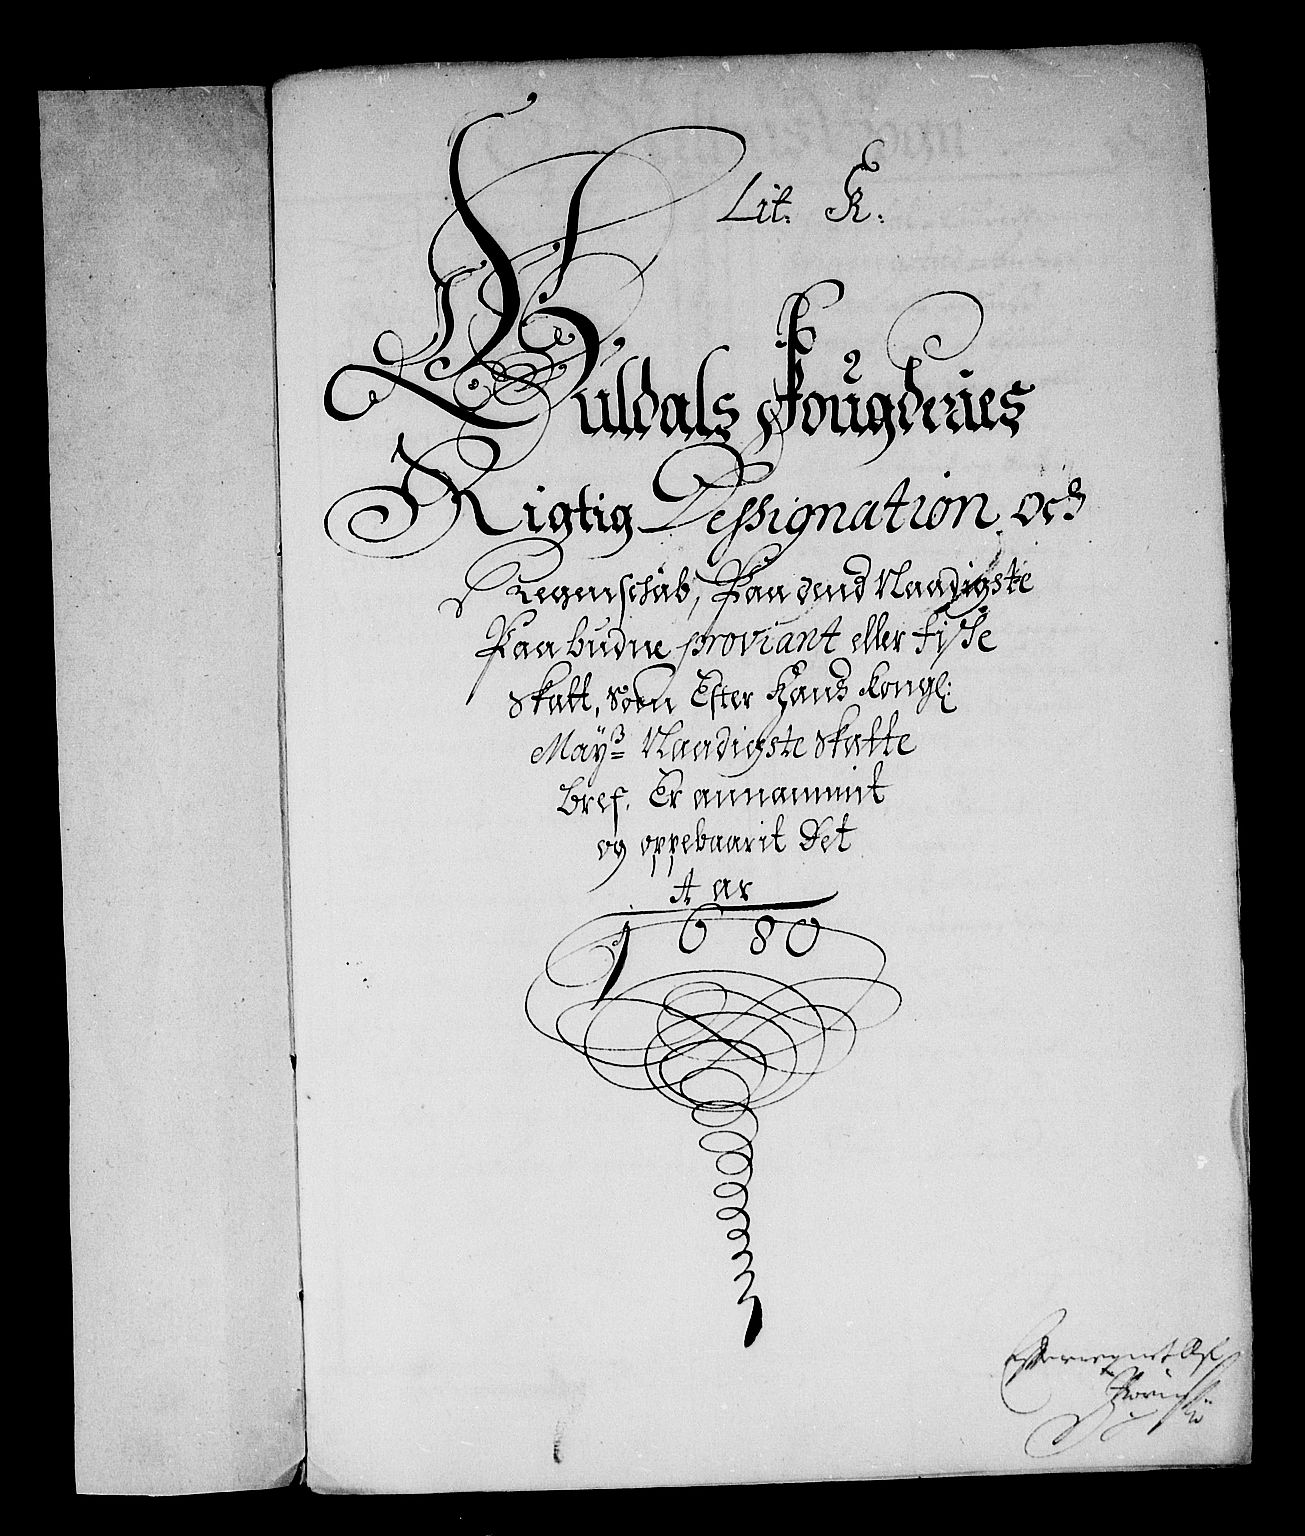 Lit. K.
Guldals Fougderies
Rigtig Dessignation och
Regenschab, Paa dend Naadigste
Paabudne proviant eller fise
Skatt, som Efter Hans Kongl:
Mayᵗˢ Naadigste Skatte
bref. Er annammit
og oppebaarit Det
Aar
1680